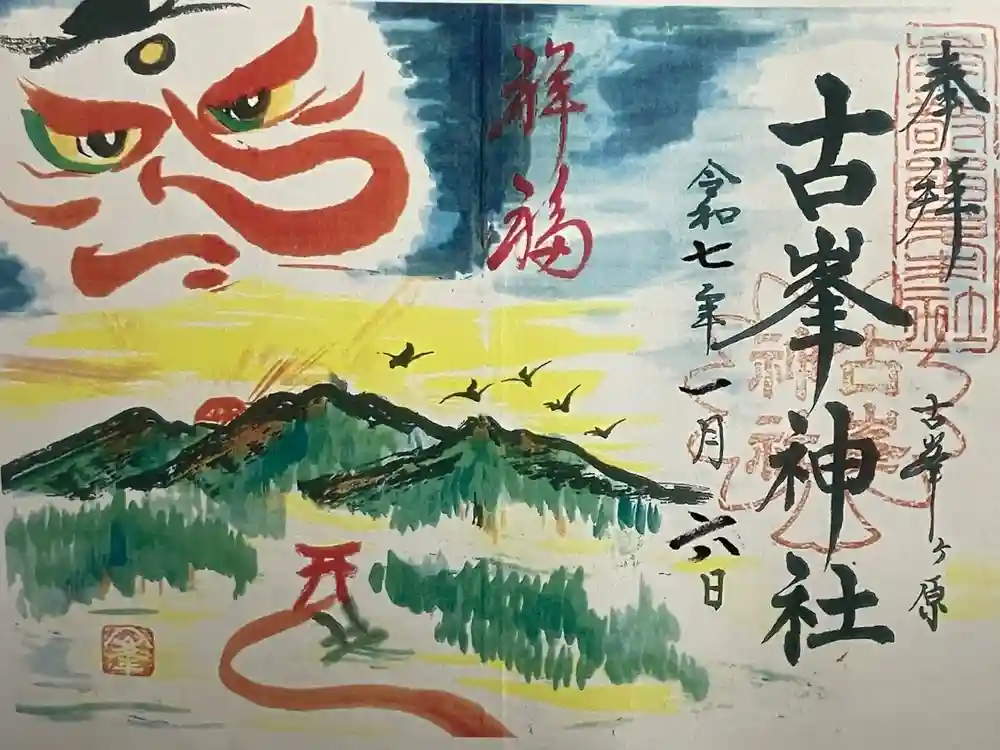 奉拝
古峯ヶ原
古峯神社
令和七年一月六日
祥福
古峯
神社
峯